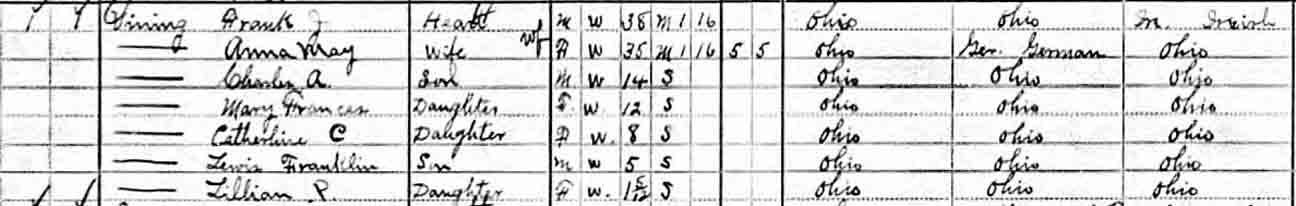 Frank J Head m w 38 M1 16 Ohio Ohio Ir. Irish
Anna May Wife wf F w 35 M1 16 5 5 Ohio Ger. German Ohio
Charles A. Son m w 14 S Ohio Ohio Ohio
Mary Frances Daughter F w. 12 S Ohio Ohio Ohio
Catherine C Daughter F w. 8 S Ohio Ohio Ohio
Lewis Franklin Son m w 5 S Ohio Ohio Ohio
Lillian R. Daughter F w. 1 5/12 S Ohio Ohio Ohio